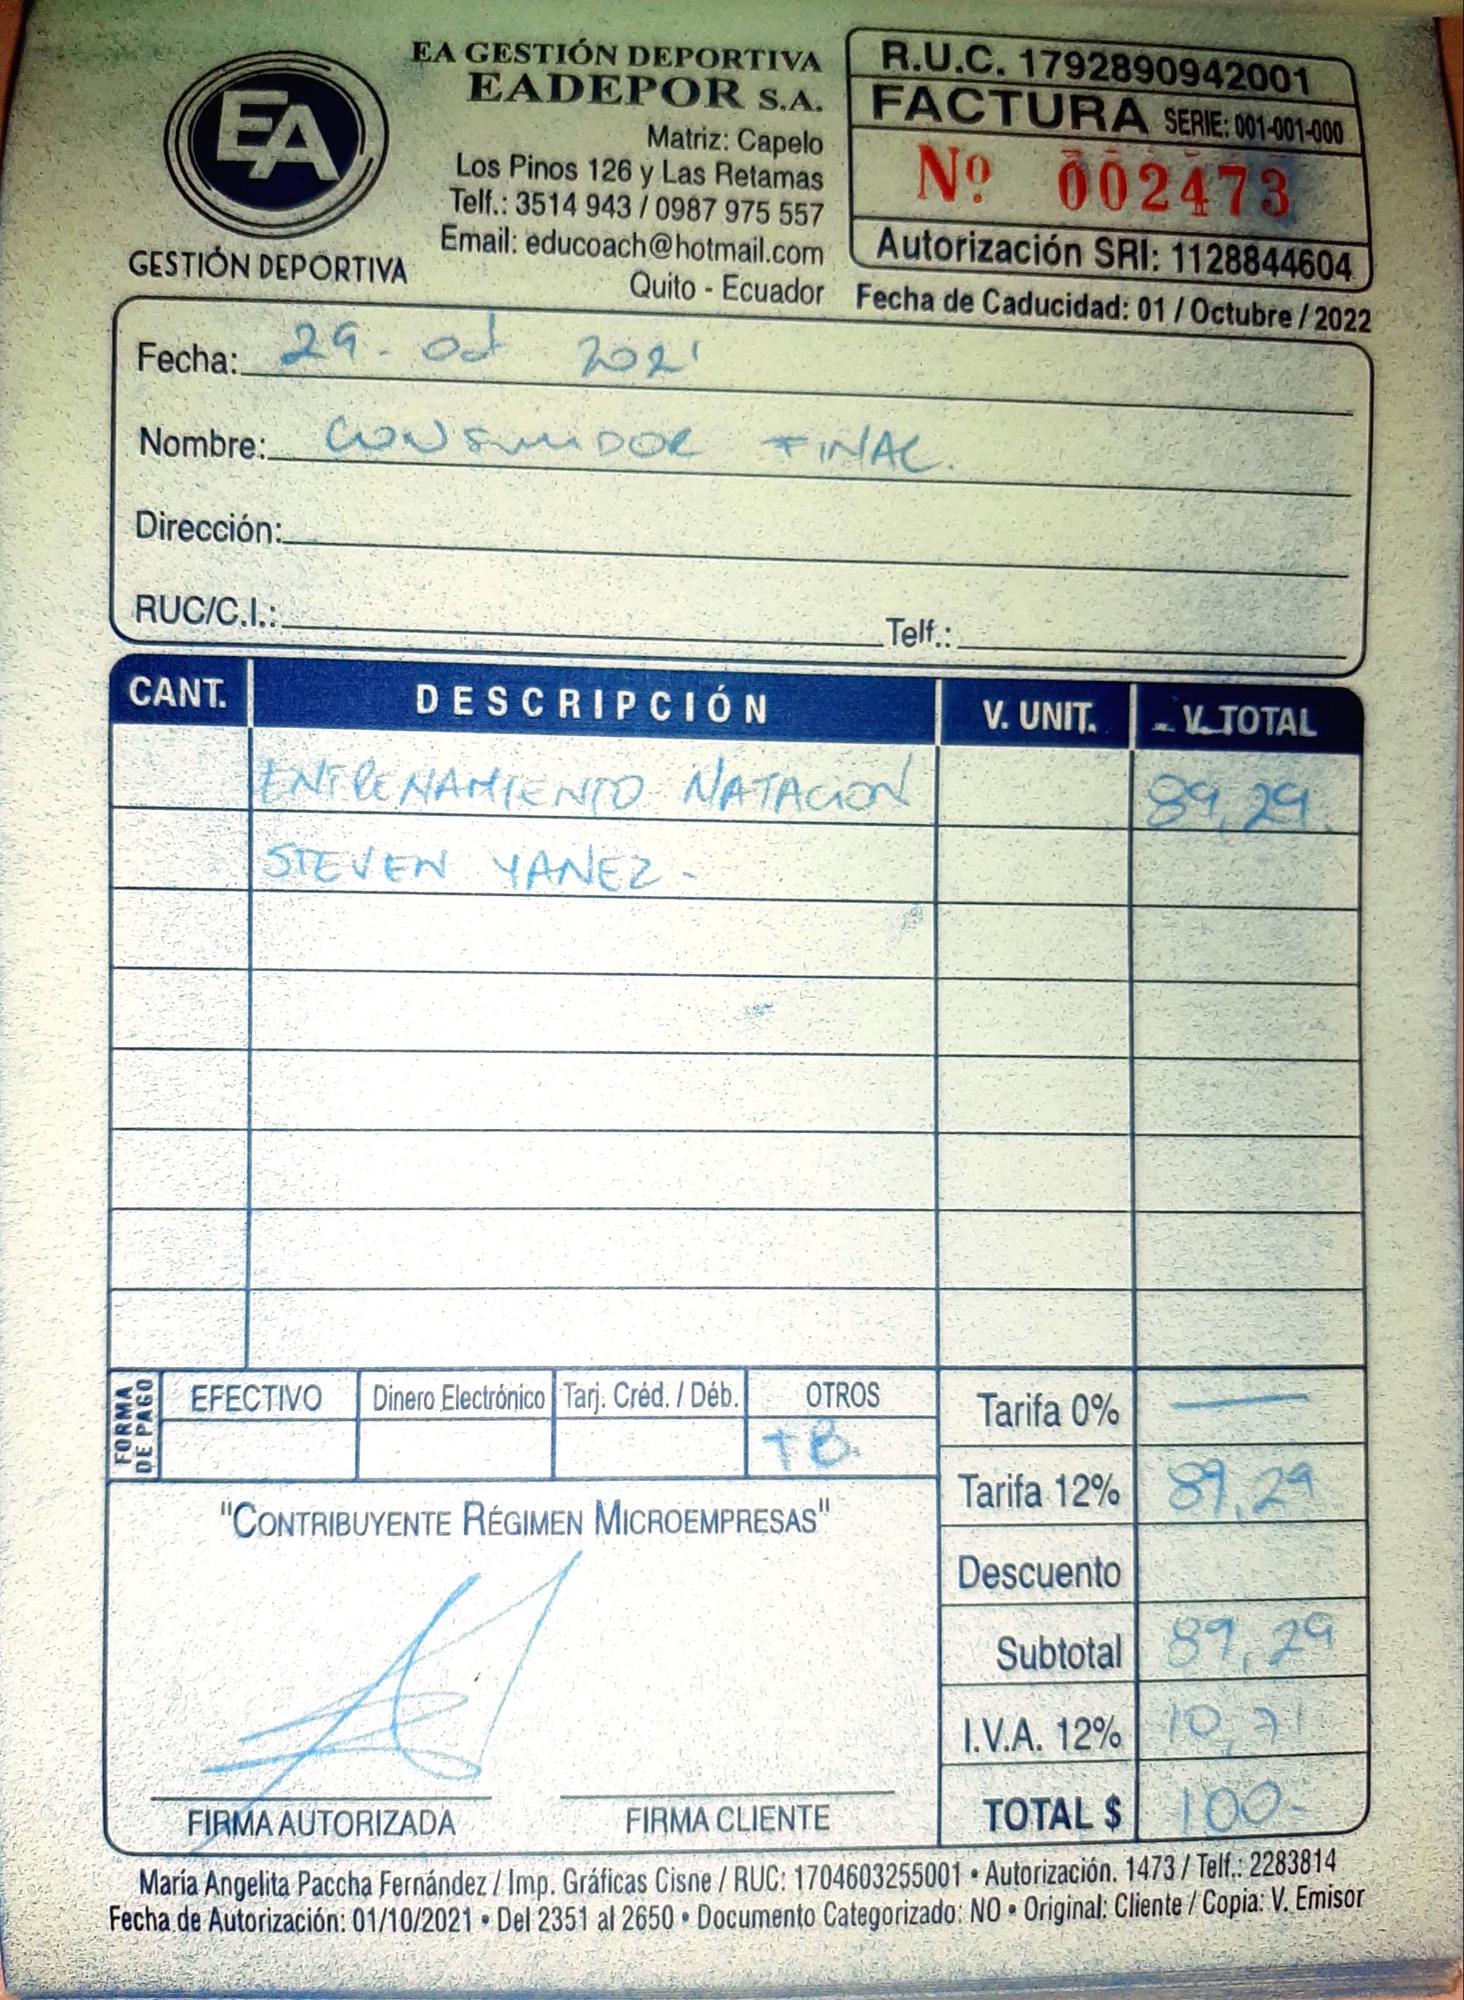 EA GESTIÓN DEPORTIVA
EADEPOR S.A.
EA
GESTIÓN DEPORTIVA
Matriz: Capelo
Los Pinos 126 y Las Retamas
Telf.: 3514 943 / 0987 975 557
Email: educoach@hotmail.com
Quito - Ecuador
R.U.C. 1792890942001
FACTURA SERIE: 001-001-000
Nº 002473
Autorización SRI: 1128844604
Fecha de Caducidad: 01 / Octubre / 2022
Fecha: 29 - Oct 2021
Nombre: CONSUMIDOR FINAL.
Dirección:
RUC/C.I.: Telf.:
CANT. DESCRIPCIÓN V. UNIT. V. TOTAL
ENTRENAMIENTO NATACION 89,29
STEVEN YANEZ -
FORMA DE PAGO EFECTIVO Dinero Electrónico Tarj. Créd. / Déb. OTROS
TB.
Tarifa 0% —
Tarifa 12% 89,29
Descuento
Subtotal 89,29
I.V.A. 12% 10,71
TOTAL $ 100-
"CONTRIBUYENTE RÉGIMEN MICROEMPRESAS"
FIRMA AUTORIZADA FIRMA CLIENTE
María Angelita Paccha Fernández / Imp. Gráficas Cisne / RUC: 1704603255001 • Autorización. 1473 / Telf.: 2283814
Fecha de Autorización: 01/10/2021 • Del 2351 al 2650 • Documento Categorizado: NO • Original: Cliente / Copia: V. Emisor